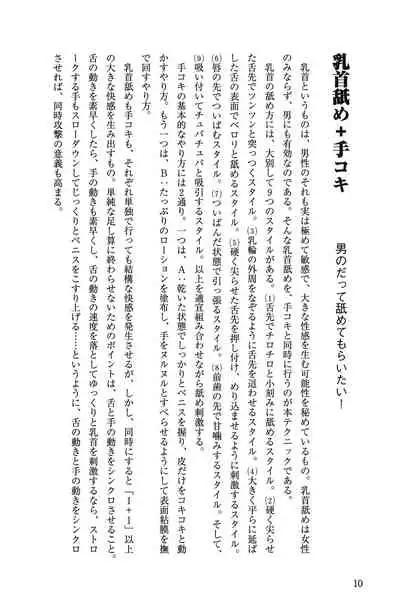 乳首舐め+手コキ
男のだって舐めてもらいたい！
乳首というものは、男性のそれも実は極めて敏感で、大きな性感を生む可能性を秘めているもの。乳首舐めは女性
のみならず、男にも有効なのである。そんな乳首舐めを、手コキと同時に行うのが本テクニックである。
乳首の舐め方には、大別して9つのスタイルがある。(1)舌先でチロチロと小刻みに舐めるスタイル。(2)硬く尖らせ
た舌先でツンツンと突っつくスタイル。(3)乳輪の外周をなぞるように舌先を這わせるスタイル。(4)大きく平らに延ば
した舌の表面でベロリと舐めるスタイル。(5)硬く尖らせた舌先を押し付け、めり込ませるように刺激するスタイル。
(6)唇の先でついばむスタイル。(7)ついばんだ状態で引っ張るスタイル。(8)前歯の先で甘噛みするスタイル。そして、
(9)吸い付いてチュパチュパと吸引するスタイル。以上を適宜組み合わせながら舐め刺激する。
手コキの基本的なやり方には2通り。一つは、A‥乾いた状態でしっかりとペニスを握り、皮だけをコキコキと動
かすやり方。もう一つは、B‥たっぷりのローションを塗布し、手をヌルヌルとすべらせるようにして表面粘膜を撫
で回すやり方。
乳首舐めも手コキも、それぞれ単独で行っても結構な快感を発生させるが、しかし、同時にすると「1+1」以上
の大きな快感を生み出すもの。単純な足し算に終わらせないためのポイントは、舌と手の動きをシンクロさせること。
舌の動きを素早くしたら、手の動きも素早くし、舌の動きの速度を落としてゆっくりと乳首を刺激するなら、ストロ
ークする手もスローダウンしてじっくりとペニスをこすり上げる……というように、舌の動きと手の動きをシンクロ
させれば、同時攻撃の意義も高まる。
10